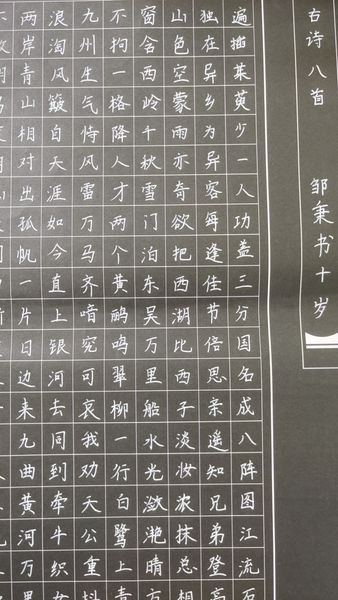 古诗八首 邹秉书十岁
遍插茱萸少一人功盖三分国名成八阵图江流石
独在异乡为异客每逢佳节倍思亲遥知兄弟登高
山色空蒙雨亦奇欲把西湖比西子淡妆浓抹总相
窗含西岭千秋雪门泊东吴万里船水光潋滟晴方
不拘一格降人才两个黄鹂鸣翠柳一行白鹭上青
九州生气恃风雷万马齐喑究可哀我劝天公重抖
浪淘风簸自天涯如今直上银河去同到牵牛织女
两岸青山相对出孤帆一片日边来九曲黄河万里